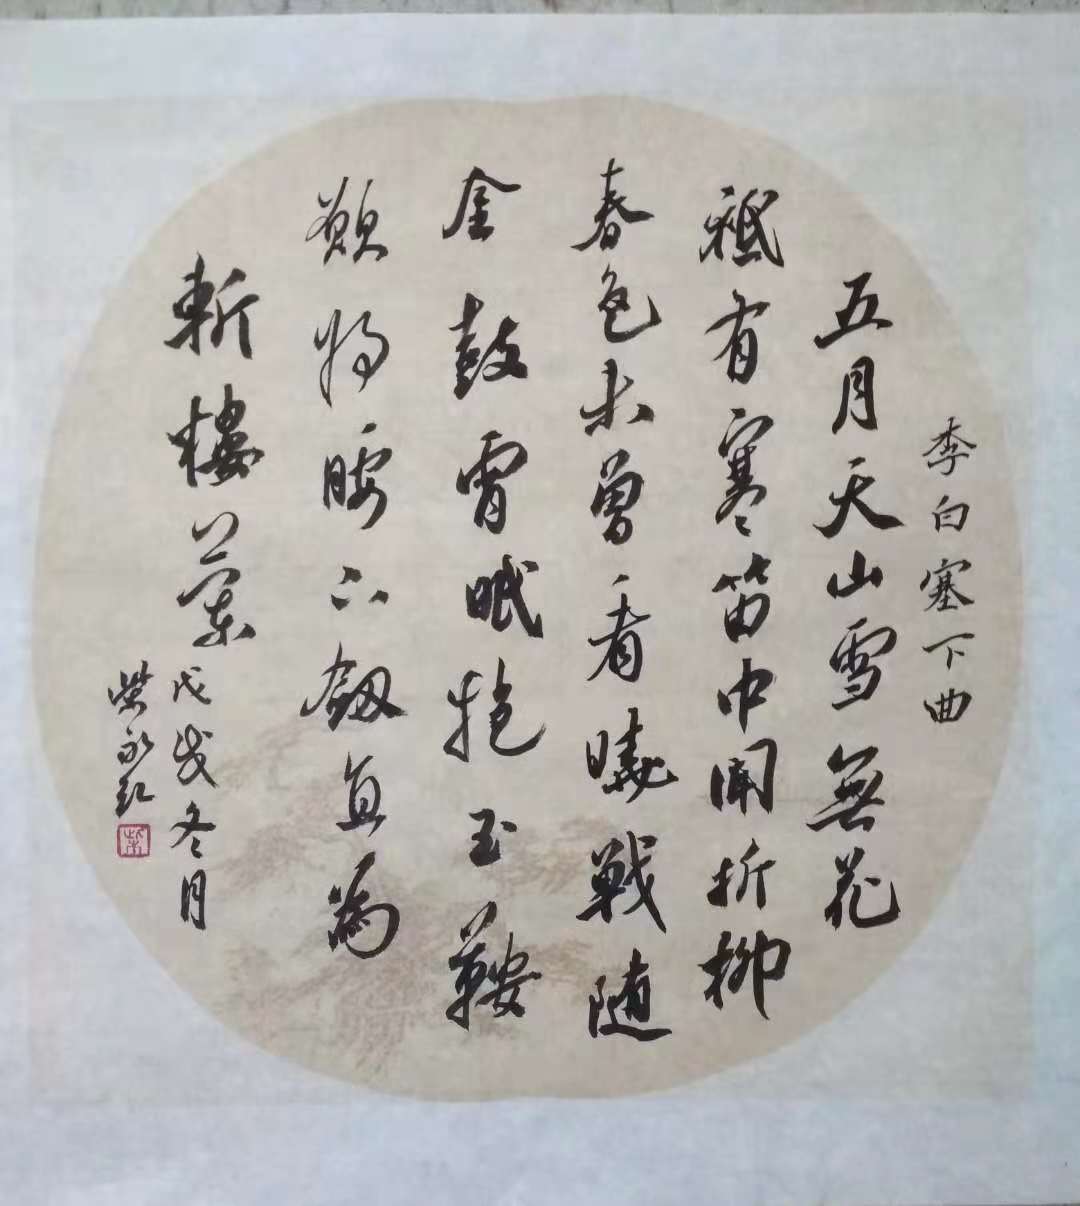 李白塞下曲
五月天山雪無花
祗有寒笛中聞折柳
春色未曾看曉戰随
金鼓宵眠抱玉鞍
願將腰下劔直為
斬樓蘭
戊戌冬月
柴永红
柴